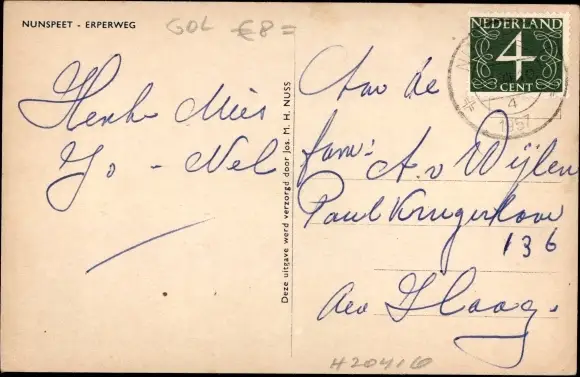 NUNSPEET - ERPERWEG
GOL €8=
Henke Mies
Jo - Nel
Deze uitgave werd verzorgd door Jos. M. H. NUSS
NEDERLAND
4
CENT
4
1957
Aan de
fam: A. v Wijlen
Paul Krugerlaan
136
Den Haag.
H20410